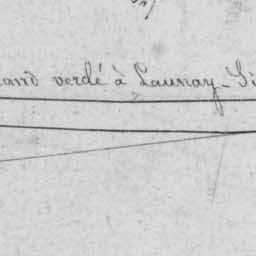 and verdé à Launay-Si